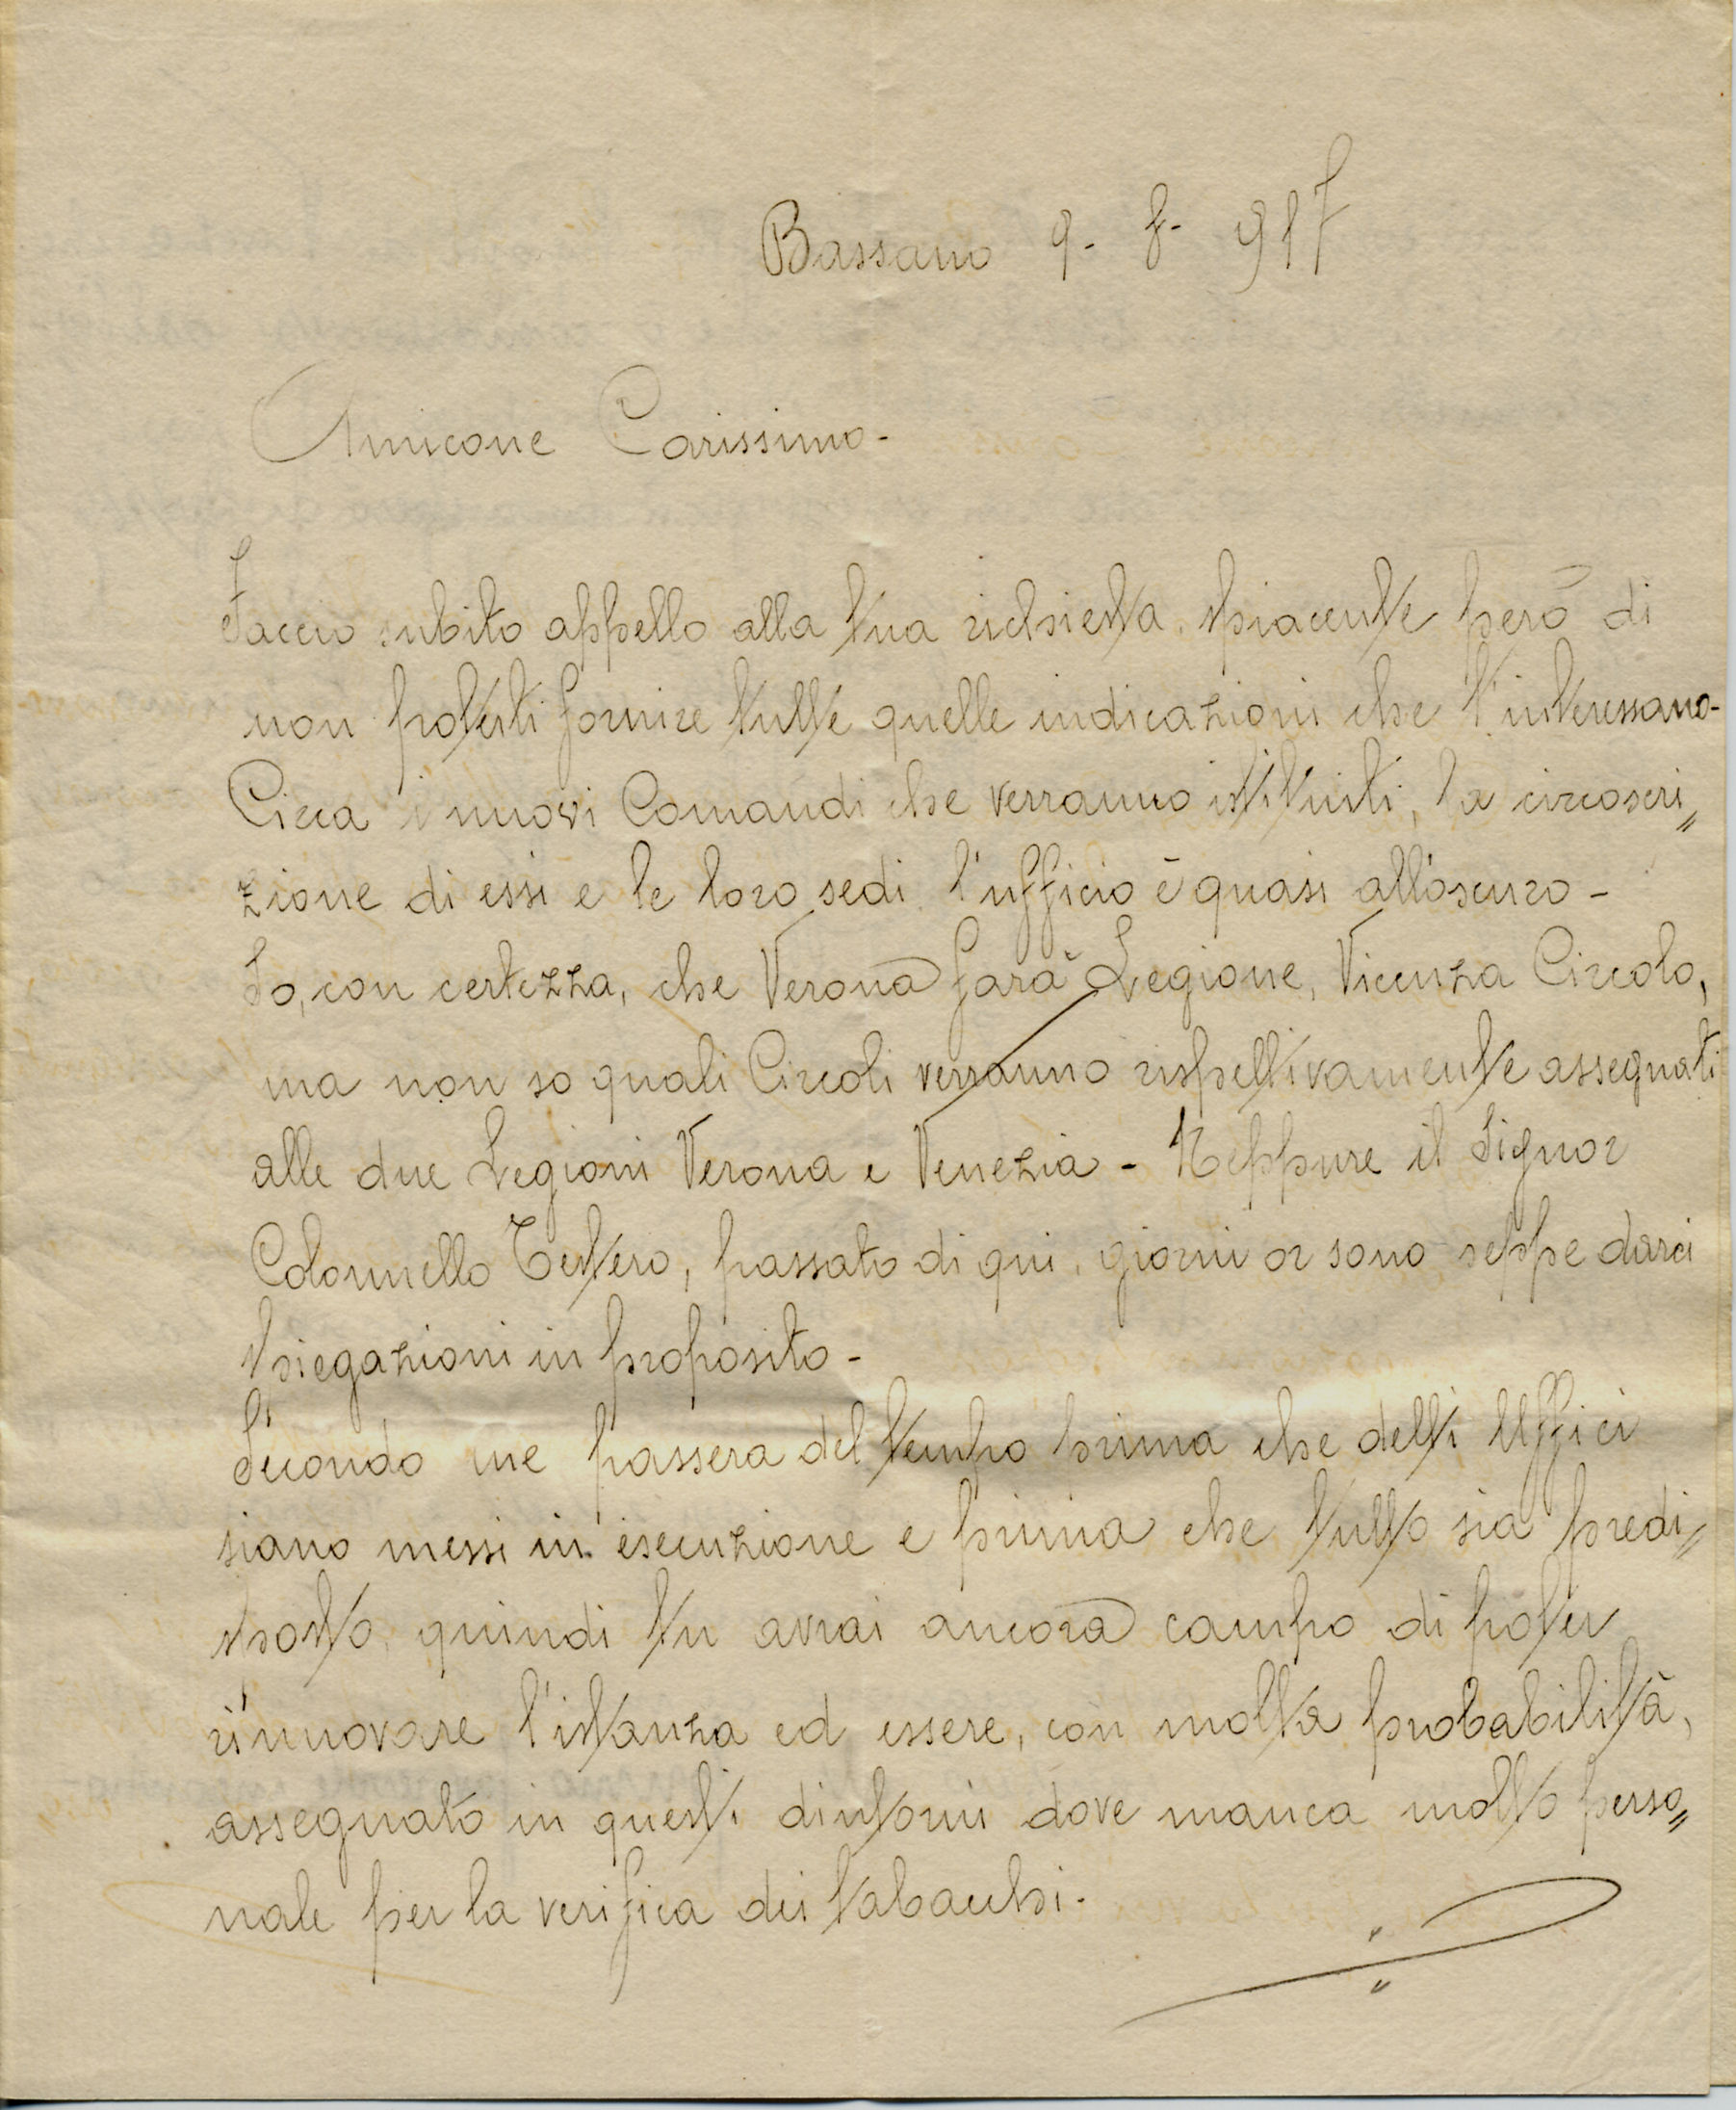 Bassano 9- 8- 917
Amicone Carissimo-
Faccio subito appello alla tua richiesta, spiacente però di
non poterti fornire tutte quelle indicazioni che t'interessano-
Circa i nuovi Comandi che verranno istituiti, la circoscri„
zione di essi e le loro sedi l'ufficio è quasi all'oscuro -
So, con certezza, che Verona farà Legione, Vicenza Circolo,
ma non so quali Circoli verranno rispettivamente assegnati
alle due Legioni Verona e Venezia - Neppure il Signor
Colonnello, passato di qui, giorni or sono seppe darci
spiegazioni in proposito -
Secondo me passera del tempo prima che detti Uffici
siano messi in esecuzione e prima che tutto sia predi„
sposto, quindi tu avrai ancora campo di poter
rinnovare l'istanza ed essere, con molta probabilità,
assegnato in questi dintorni dove manca molto perso„
nale per la verifica dei tabacchi.